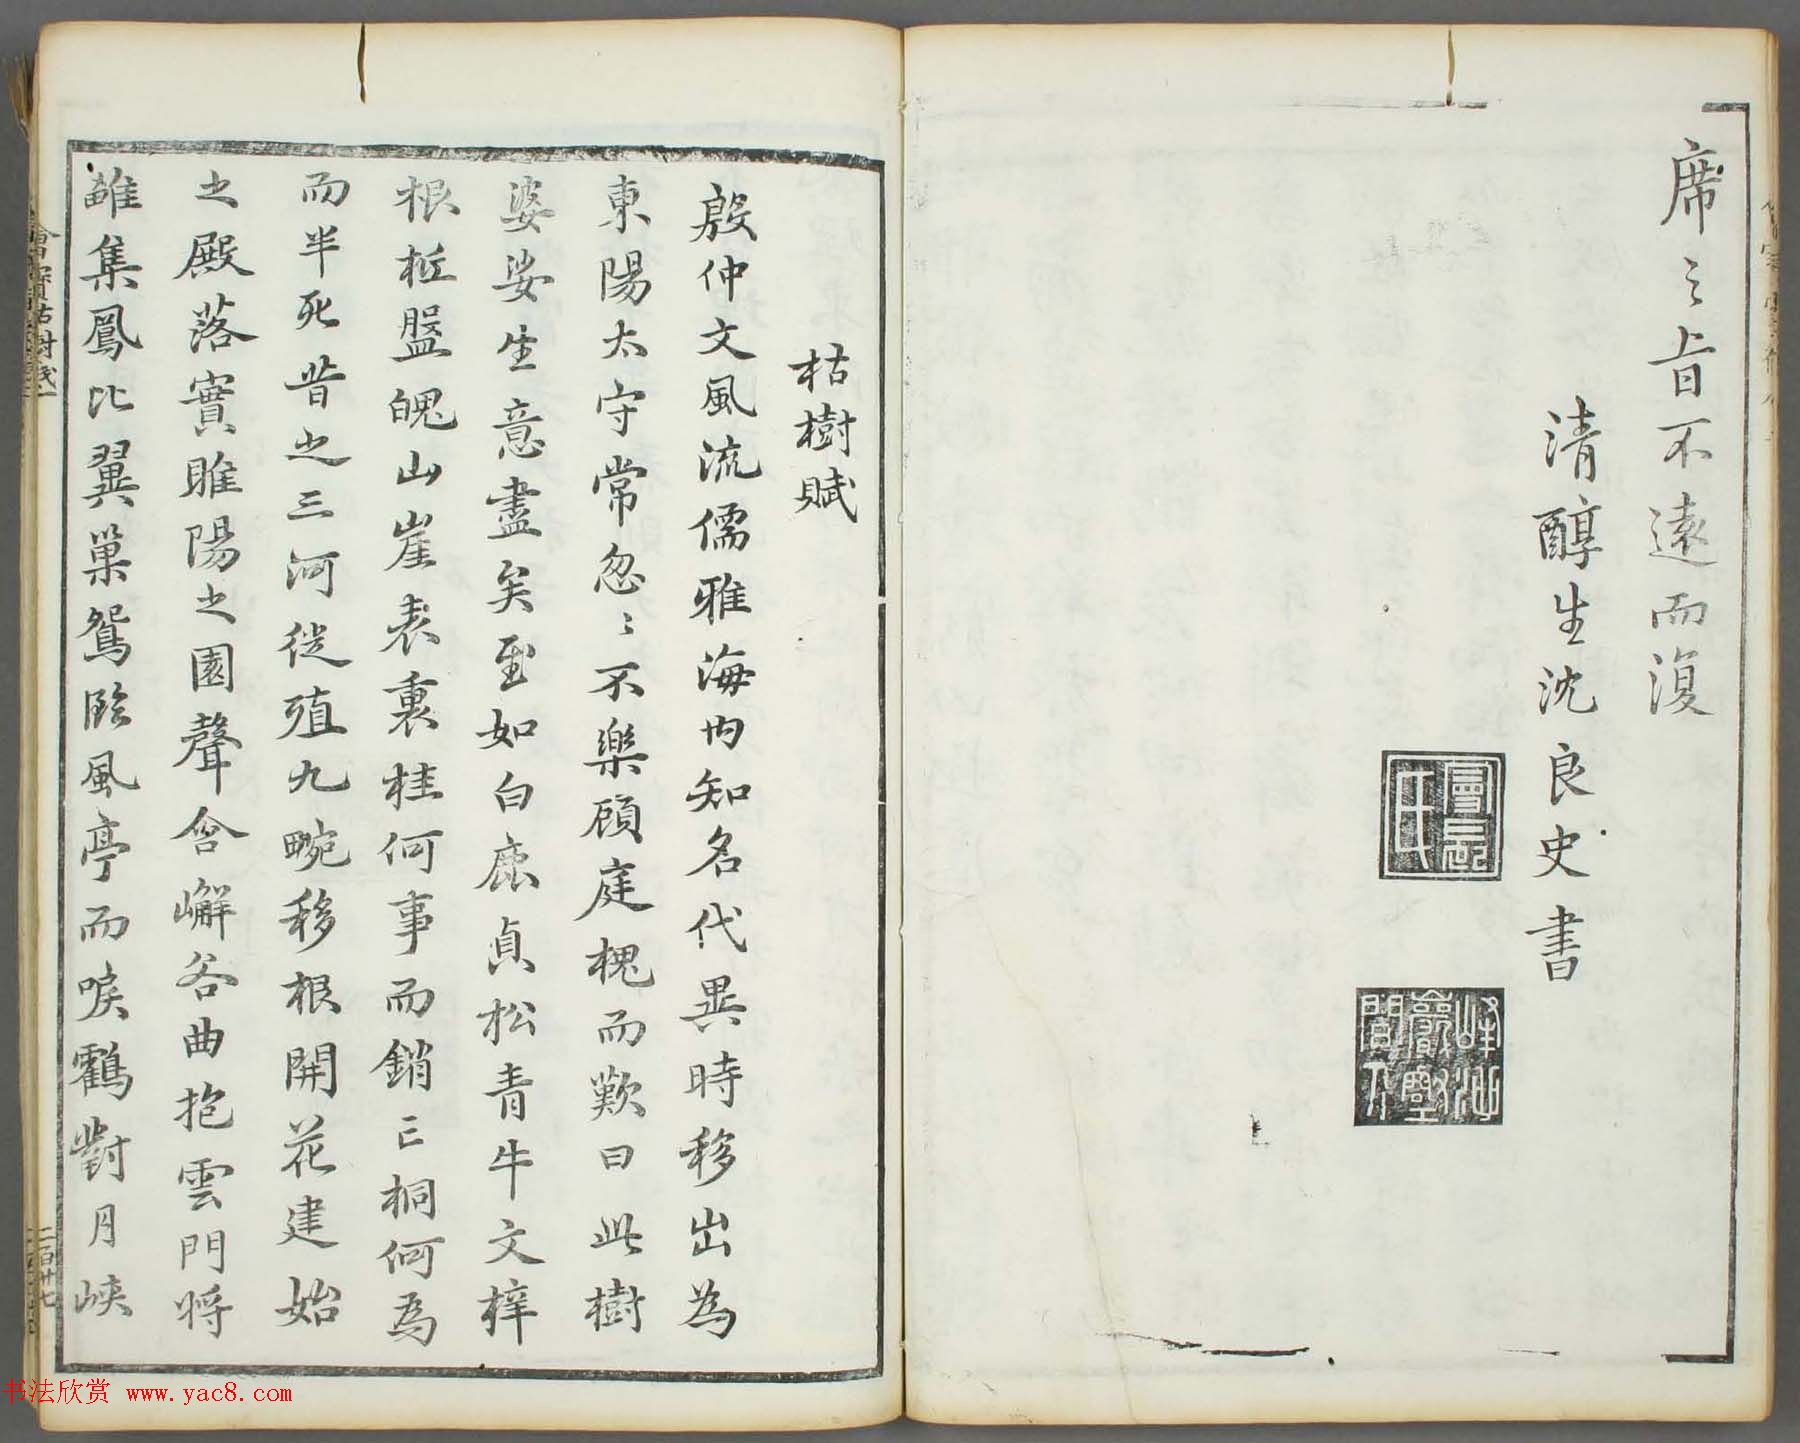 席〻旨不遠而復
清醇生沈良史書
枯樹賦
殷仲文風流儒雅海内知名代異時移出為
東陽太守常忽〻不樂顧庭槐而歎曰此樹
婆娑生意盡矣至如白鹿貞松青牛文梓
根柢盤魄山崖表裏桂何事而銷亡桐何為
而半死昔之三河徙殖九畹移根開花建始
之殿落實睢陽之園聲含嶰谷曲抱雲門將
雛集鳳比翼巢鴛臨風亭而唳鶴對月峽
二百廿七
书法欣赏 www.yac8.com